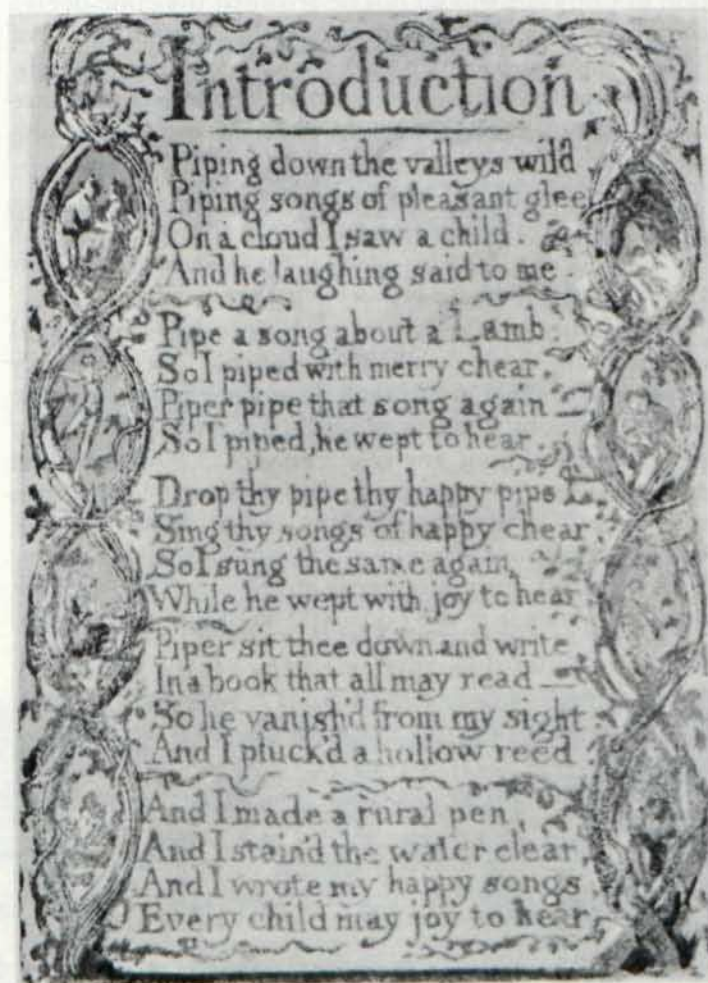 Introduction
Piping down the valleys wild
Piping songs of pleasant glee
On a cloud I saw a child.
And he laughing said to me.
Pipe a song about a Lamb:
So I piped with merry chear,
Piper pipe that song again—
So I piped, he wept to hear.
Drop thy pipe thy happy pipe
Sing thy songs of happy chear,
So I sung the same again
While he wept with joy to hear
Piper sit thee down and write
In a book that all may read—
So he vanish'd from my sight
And I pluck'd a hollow reed.
And I made a rural pen,
And I stain'd the water clear,
And I wrote my happy songs
Every child may joy to hear